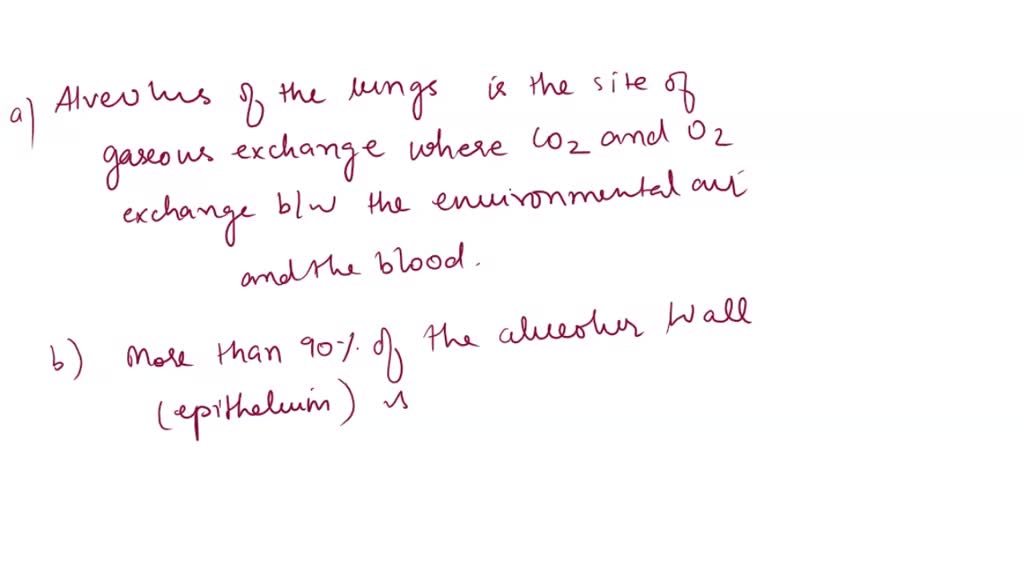 a) Alveolus of the lungs is the site of
gaseous exchange where CO2 and O2
exchange b/w the environmental air
and the blood.
b) More than 90% of the alveolar wall
(epithelium) is